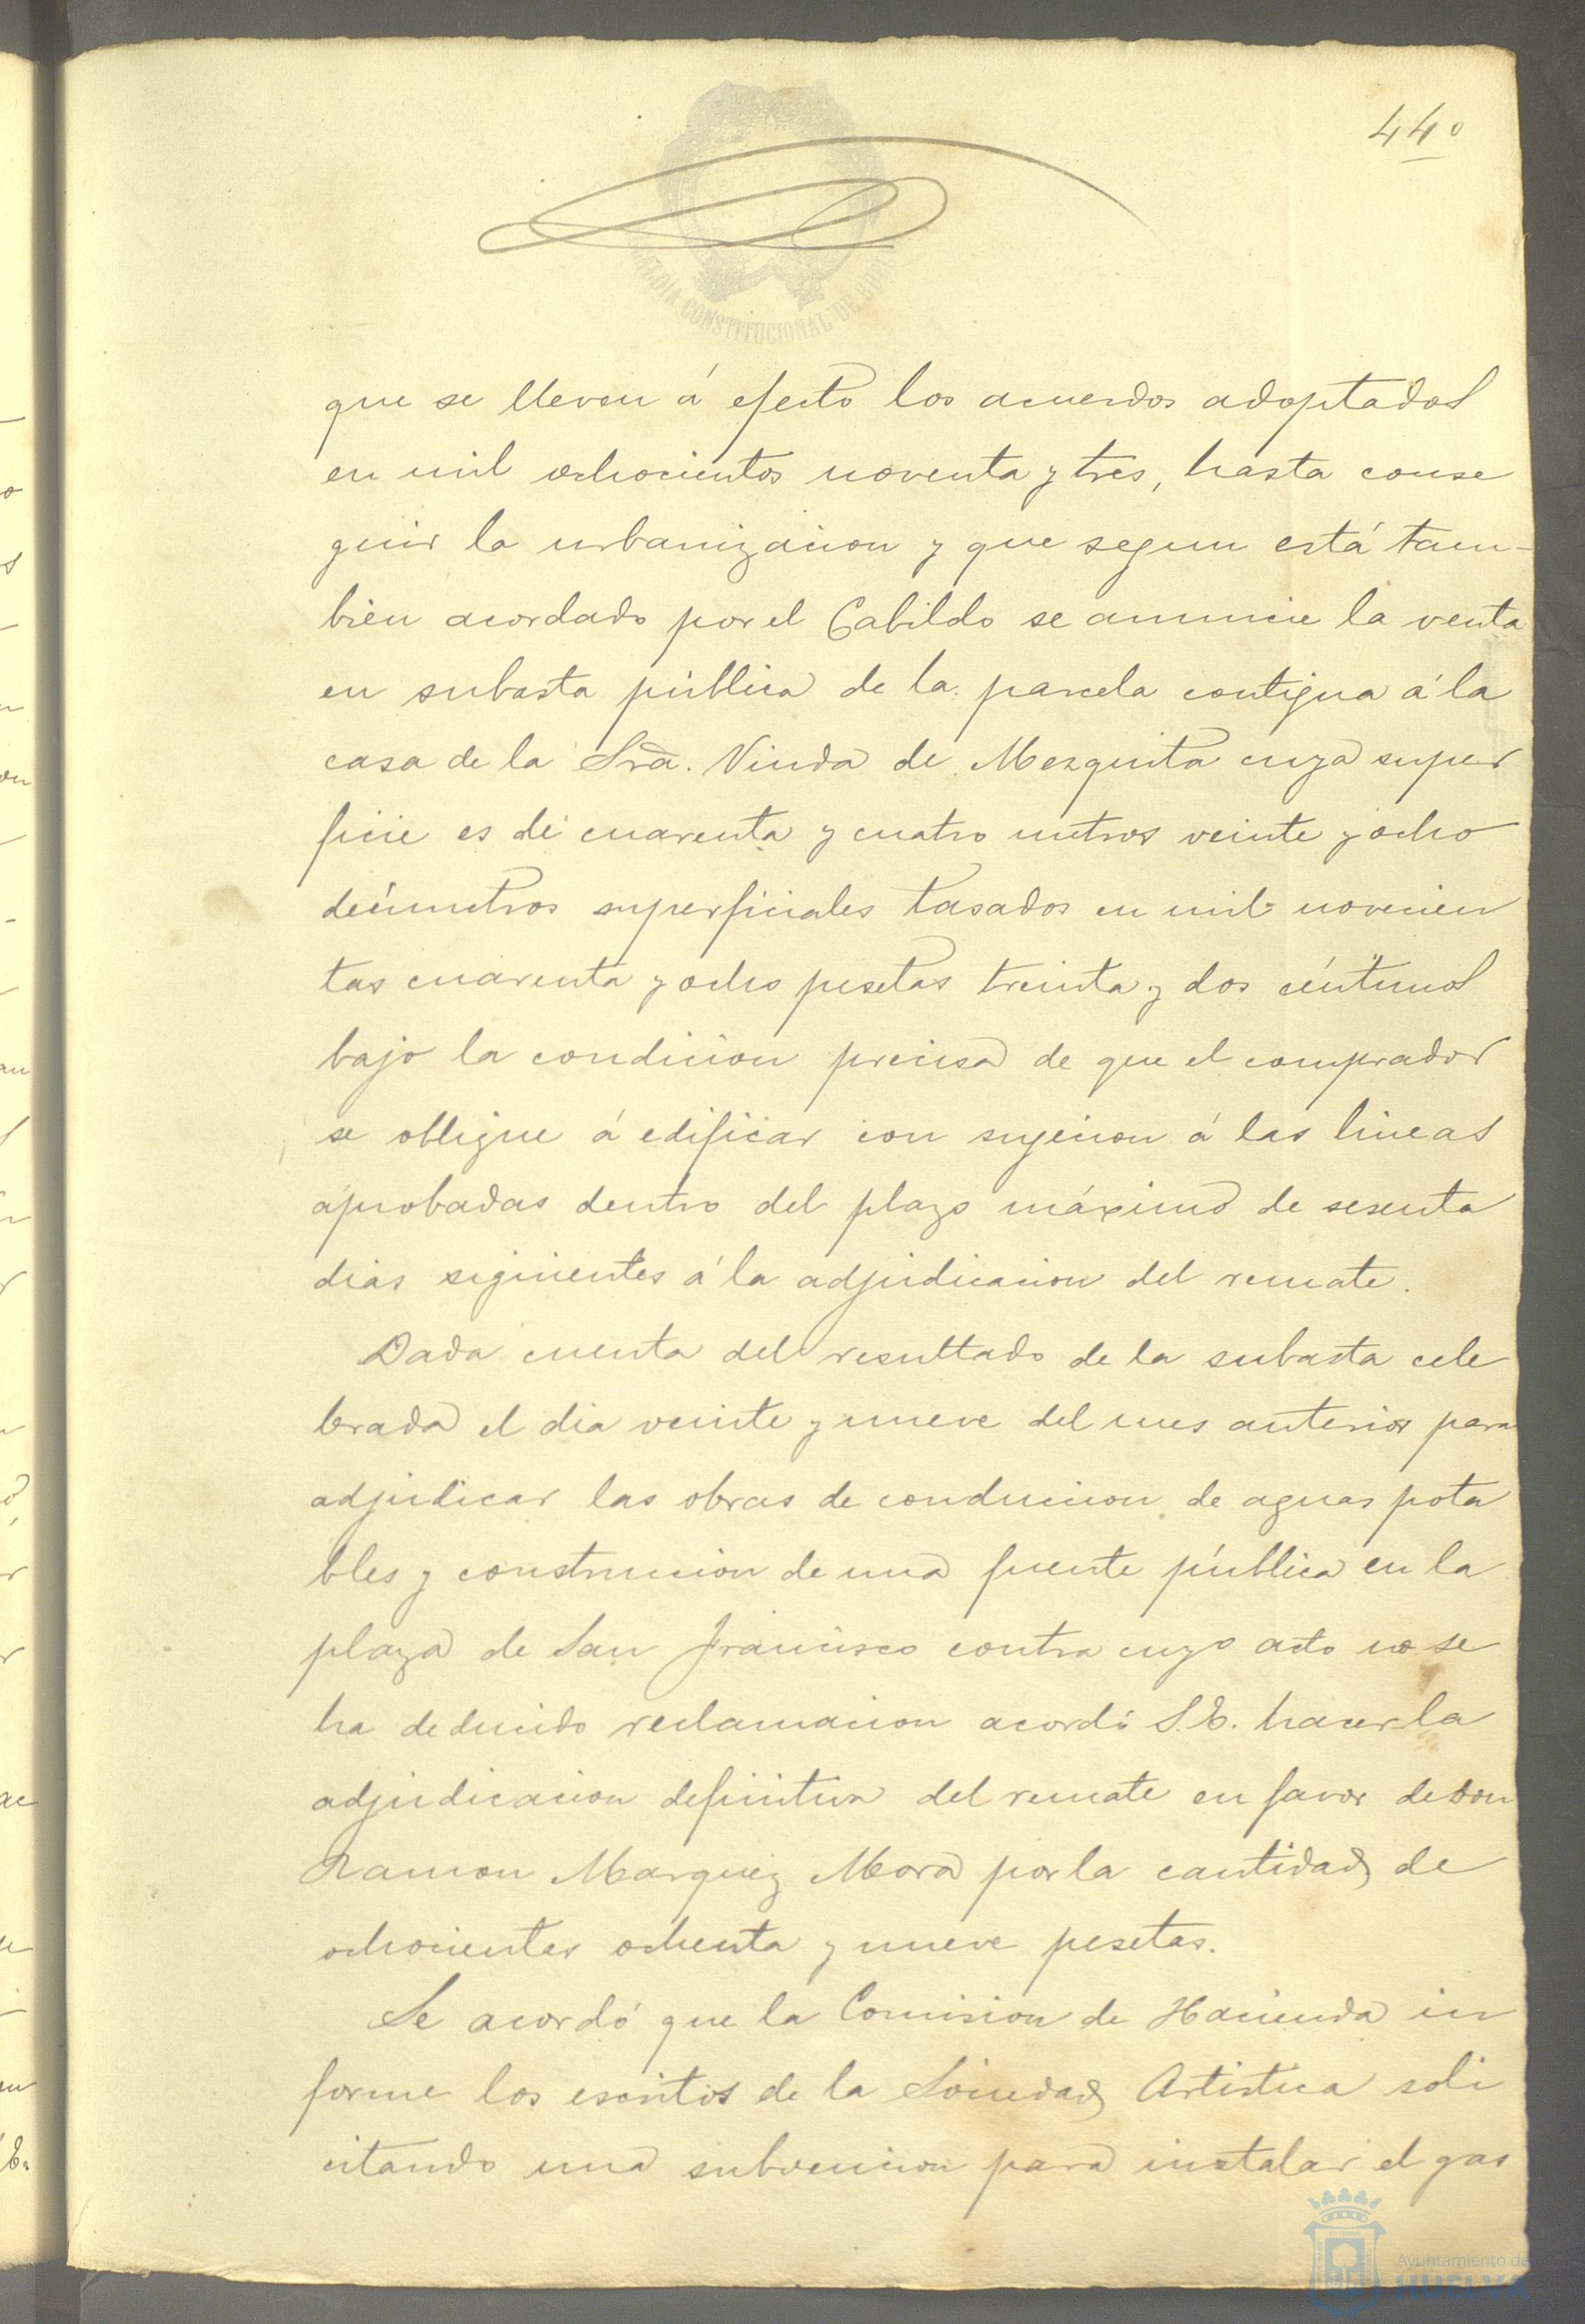 440
ALCALDIA CONSTITUCIONAL DE
que se lleven á efecto los acuerdos adoptados
en mil ochocientos noventa y tres, hasta conse
guir la urbanizacion y que segun está tam-
bien acordado por el Cabildo se anuncie la venta
en subasta pública de la parcela contigua á la
casa de la Sra. Viuda de Mezquita cuya super
ficie es de cuarenta y cuatro metros veinte y ocho
decimetros superficiales tasados en mil novecien
tas cuarenta y ocho pesetas treinta y dos céntimos
bajo la condicion precisa de que el comprador
se obligue á edificar con sujecion á las lineas
aprobadas dentro del plazo máximo de sesenta
dias siguientes á la adjudicacion del remate.
Dada cuenta del resultado de la subasta cele
brada el dia veinte y nueve del mes anterior para
adjudicar las obras de conduccion de aguas pota
bles y construccion de una fuente pública en la
plaza de San Francisco contra cuyo acto no se
ha deducido reclamacion acordó S.E. hacer la
adjudicacion definitiva del remate en favor de Don
Ramon Marquez Mora por la cantidad de
ochocientas ochenta y nueve pesetas.
Se acordó que la Comision de Hacienda in
forme los escritos de la Sociedad Artistica soli
citando una subvencion para instalar el gas
Ayuntamiento de
HUELVA